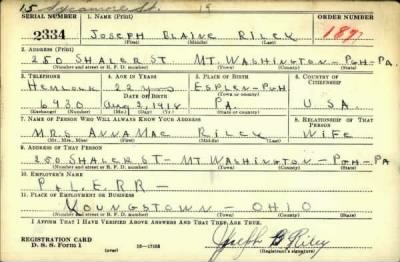 15 Sycamore St. 19
SERIAL NUMBER 1. NAME (Print) ORDER NUMBER
2334 JOSEPH BLAINE RILEY
(First) (Middle) (Last)
2. ADDRESS (Print)
250 SHALER ST. MT. WASHINGTON - PGH - PA.
(Number and street or R. F. D. number) (Town) (County) (State)
3. TELEPHONE 4. AGE IN YEARS 5. PLACE OF BIRTH 6. COUNTRY OF CITIZENSHIP
HEMLOCK 22 yrs ESPLEN - PGH
DATE OF BIRTH (Town or county)
6930 Aug 2, 1918 PA. U.S.A.
(Exchange) (Number) (Mo.) (Day) (Yr.) (State or country)
7. NAME OF PERSON WHO WILL ALWAYS KNOW YOUR ADDRESS 8. RELATIONSHIP OF THAT PERSON
MRS. ANNA MAE RILEY WIFE
(Mr., Mrs., Miss) (First) (Middle) (Last)
9. ADDRESS OF THAT PERSON
250 SHALER ST - MT WASHINGTON - PGH - PA
(Number and street or R. F. D. number) (Town) (County) (State)
10. EMPLOYER'S NAME
P & L.E. R.R. -
11. PLACE OF EMPLOYMENT OR BUSINESS
YOUNGSTOWN - OHIO
(Number and street or R. F. D. number) (Town) (County) (State)
I AFFIRM THAT I HAVE VERIFIED ABOVE ANSWERS AND THAT THEY ARE TRUE.
REGISTRATION CARD
D. S. S. FORM 1 (over) 16—17105 Joseph B Riley